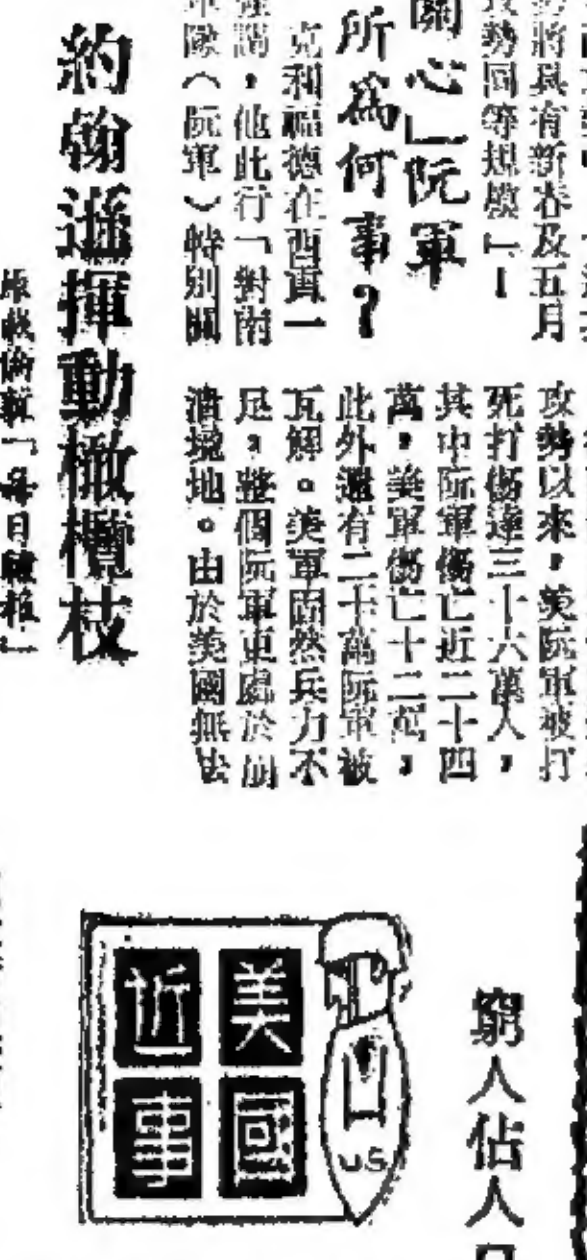 勢將具有新春及五月
攻勢同等規模」！
關心」阮軍
所為何事？
克利福德在西貢一
，他此行「對南
軍隊（阮軍）特別關
攻勢以來，美阮軍被打
死打傷達三十六萬人，
其中阮軍傷亡近二十四
萬，美軍傷亡十二萬，
此外還有二十萬阮軍被
瓦解。美軍固然兵力不
足，整個阮軍更處於崩
潰境地。由於美國無法
約翰遜揮動橄欖枝
原載倫敦「每日
窮人佔人
美國
近事
US